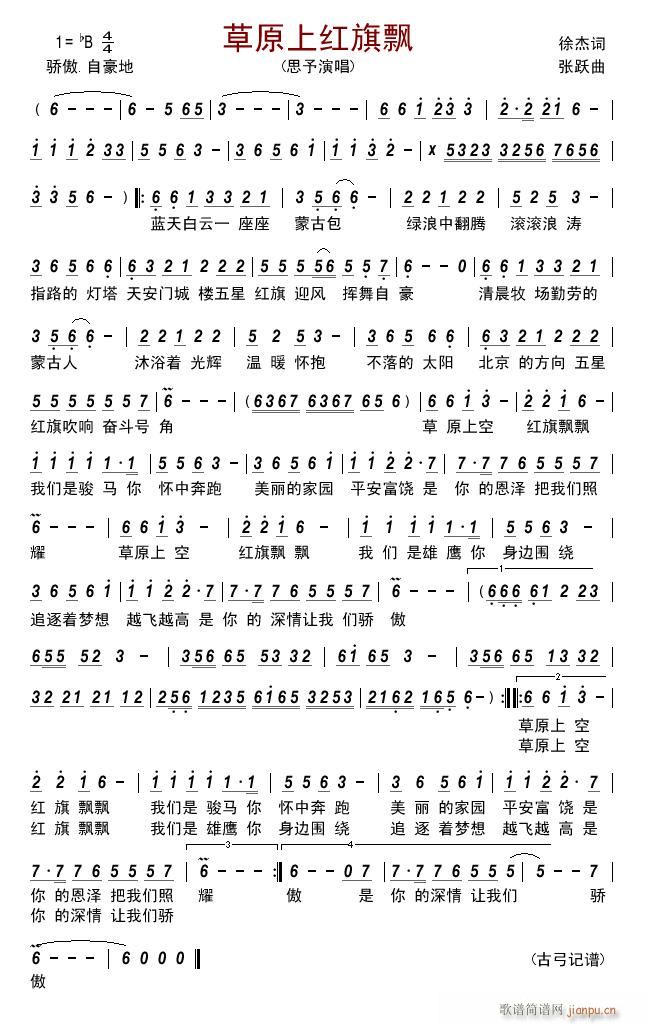 草原上红旗飘
1= ♭B 4/4
徐杰词
骄傲.自豪地
(思予演唱)
张跃曲
( 6 - - - | 6 - 5 65 | 3 - - - | 3 - - - | 6 6 1 23 3 | 2·2 21 6 - |
1 1 1 2 33 | 5 5 6 3 - | 3 6 5 6 1 | 1 1 3 2 - | x 5323 3256 7656 |
3 3 5 6 - ) ‖: 6 6 1 3 3 2 1 | 3 5 6 6 - | 2 2 1 2 2 | 5 2 5 3 - |
蓝天白云一 座座 蒙古包 绿浪中翻腾 滚滚浪 涛
3 6 5 6 6 | 6 3 2 1 2 1 | 5 5 5 5 56 | 5 5 5 7 | 6 - - 0 | 6 6 1 3 3 2 1 |
指路的 灯塔 天安门城 楼五星 红旗 迎风 挥舞自 豪 清晨牧 场勤劳的
3 5 6 6 - | 2 2 2 1 2 | 5 2 5 3 - | 3 6 5 6 6 | 6 3 2 1 2 1 |
蒙古人 沐浴着 光辉 温 暖 怀抱 不落的 太阳 北京 的方向 五星
5 5 5 5 5 5 7 | 6 - - - | (6367 6367 65 6) | 6 6 1 3 - | 2 2 1 6 - |
红旗吹响 奋斗号 角 草 原上空 红旗飘飘
1 1 1 1 1·1 | 5 5 6 3 - | 3 6 5 6 1 | 1 1 2 2·7 | 7·7 7 6 5 5 5 7 |
我们是骏 马 你 怀中奔跑 美丽的家园 平安富饶 是 你 的恩泽 把我们照
6 - - - | 6 6 1 3 - | 2 2 1 6 - | 1 1 1 1 1·1 | 5 5 6 3 - |
耀 草原上 空 红旗飘 飘 我 们 是雄 鹰 你 身边围 绕
3 6 5 6 1 | 1 1 2 2·7 | 7·7 7 6 5 5 5 7 | 6 - - - | 1 (666 61 2 23 |
追逐着梦想 越飞越高 是 你 的 深情让我 们骄 傲
655 52 3 - | 356 65 53 32 | 61 3 - - | 356 65 13 32 |
32 21 21 12 | 256 1235 6165 3253 | 2162 165 6 - ) :‖: 2 6 6 1 3 - |
草原上 空
草原上 空
2 2 1 6 - | 1 1 1 1 1·1 | 5 5 6 3 - | 3 6 5 6 1 | 1 1 2 2·7 |
红 旗 飘飘 我们是 骏马 你 怀中奔 跑 美 丽 的家园 平安富 饶是
红 旗 飘飘 我们是 雄鹰 你 身边围 绕 追 逐 着梦想 越飞越 高是
7·7 7 6 5 5 5 7 | 3 6 - - - :‖ 4 6 - - 0 7 | 7·7 7 6 5 5 5 | 5 - - 7 |
你 的恩泽 把我们照 耀 傲 是 你 的深情 让我们 骄
你 的深情 让我们骄
6 - - - | 6 0 0 0 ‖
(古弓记谱)
傲
歌谱简谱网
jianpu.cn